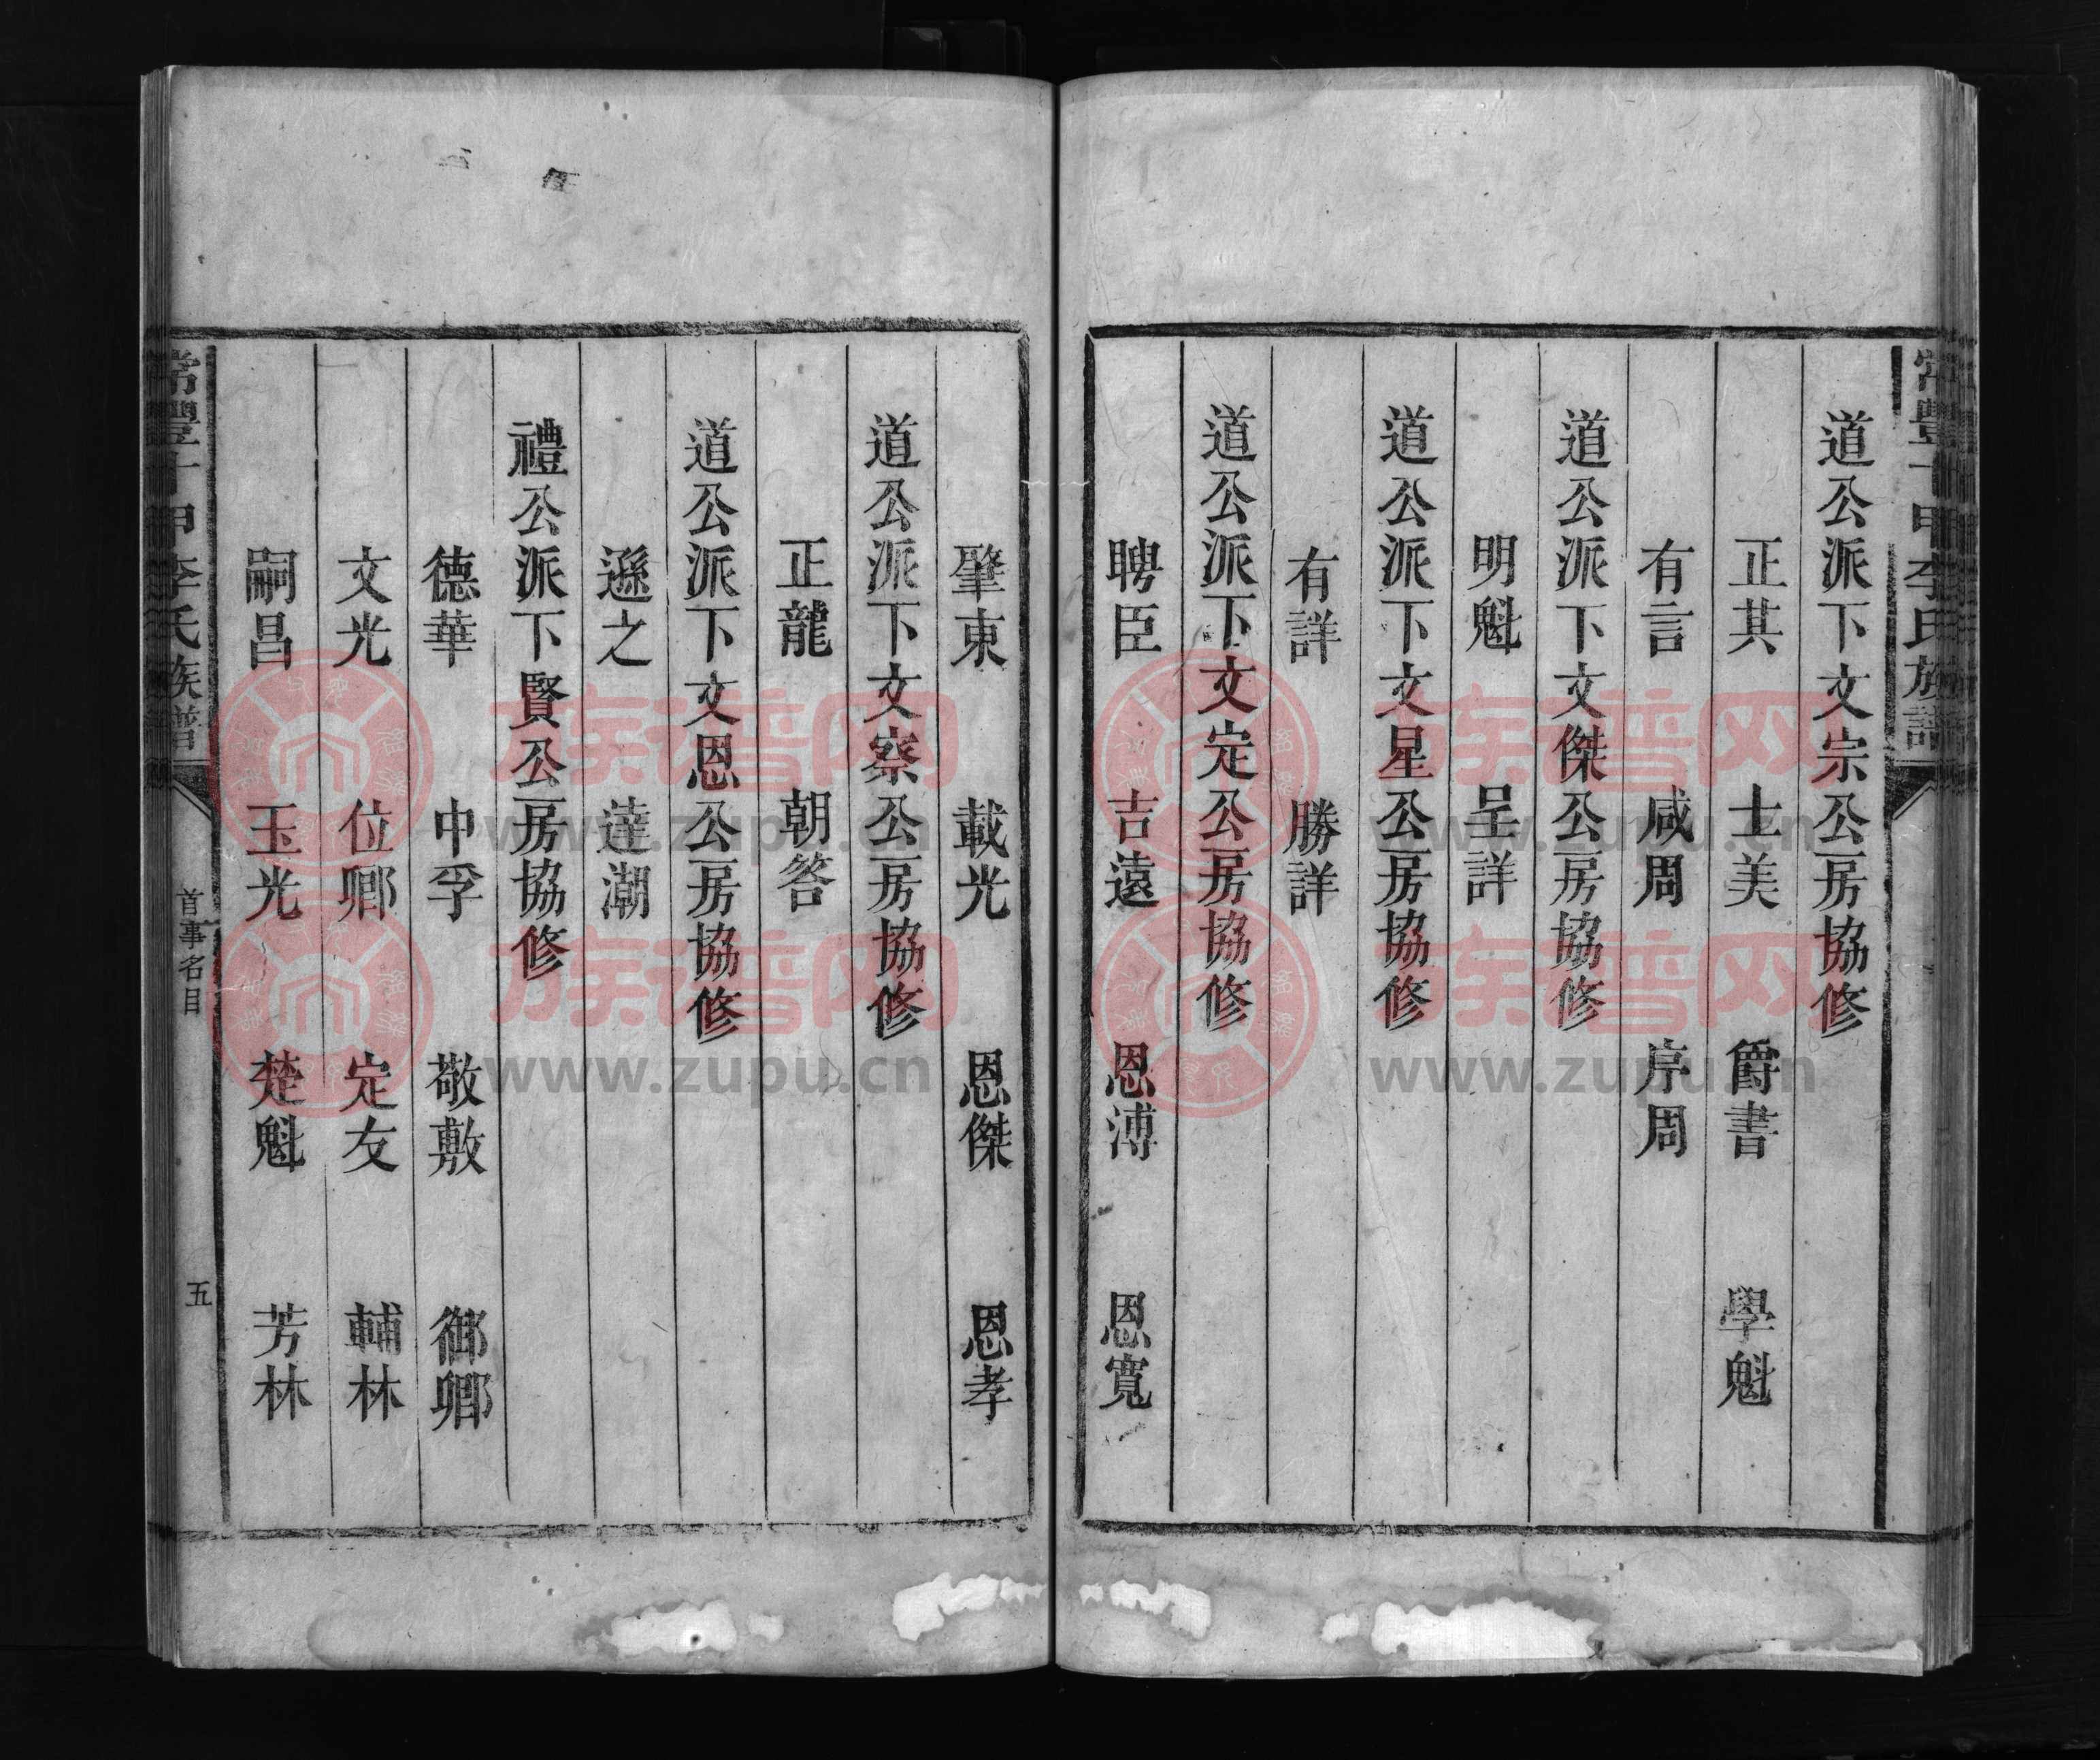 常豐十甲李氏族譜
道公派下文宗公房協修
正其 士美 爵書 學魁
有言 咸周 序周
道公派下文傑公房協修
明魁 呈詳
道公派下文星公房協修
有詳 勝詳
道公派下文定公房協修
聘臣 吉遠 恩溥 恩寬
肇東 載光 恩傑 恩孝
道公派下文察公房協修
正龍 朝答
道公派下文恩公房協修
遜之 達潮
禮公派下賢公房協修
德華 中孚 敬敷 御卿
文光 位卿 定友 輔林
嗣昌 玉光 楚魁 芳林
常豐十甲李氏族譜 首事名目 五
族谱网
www.zupu.cn
族谱网
www.zupu.cn
族谱网
www.zupu.cn
族谱网
www.zupu.cn